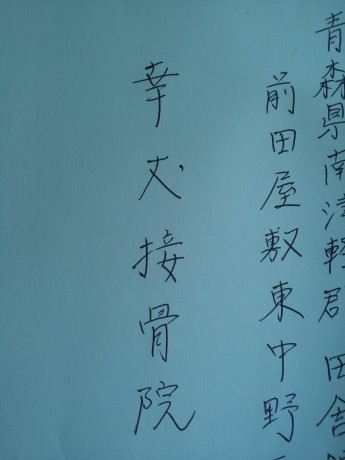 青森県南津軽郡田舎
前田屋敷東中野
幸丈接骨院